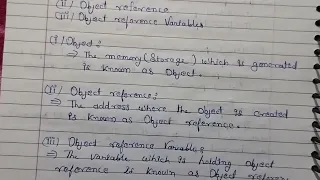 (II) Object reference
(III) Object reference Variables.
(I) Object:
⇒ The memory (Storage) which is generated
is known as Object.
(II) Object reference:
⇒ The address where the Object is created
is known as Object reference.
(III) Object reference Variable:
⇒ The variable which is holding object
reference is known as Object